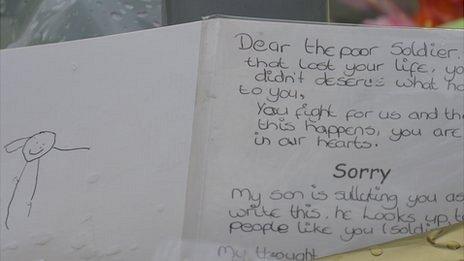 Dear the poor Soldier.
that lost your life, yo
didn't deserve what ha
to you,
You fight for us and the
this happens, you are
in our hearts.
Sorry
My son is sulluting you as
write this. he looks up to
people like you (soldi
My thought